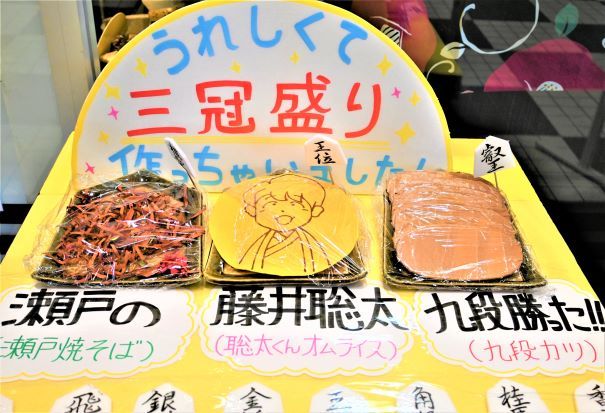 うれしくて
三冠盛り
作っちゃいました!
王位
叡王
瀬戸の
藤井聡太
九段勝った!!
(瀬戸焼そば)
(聡太くんオムライス)
(九段カツ)
飛 銀 金 王 角 桂 香